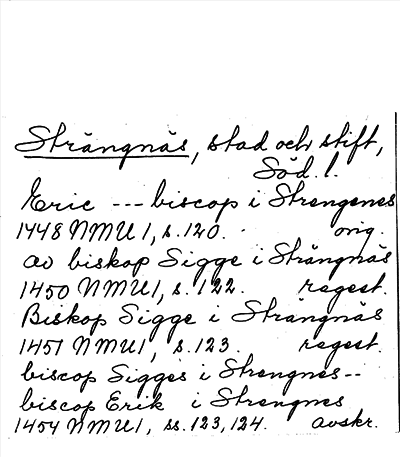 Strängnäs, stad och stift,
Söd. l.
Eric --- biscop i Strengenes
1448 NMU 1, s. 120. orig.
av biskop Sigge i Strängnäs
1450 NMU 1, s. 122. regest.
Biskop Sigge i Strängnäs
1451 NMU 1, s. 123. regest.
biscop Sigges i Strengnes--
biscop Erik i Strengnes
1454 NMU 1, ss. 123, 124. avskr.